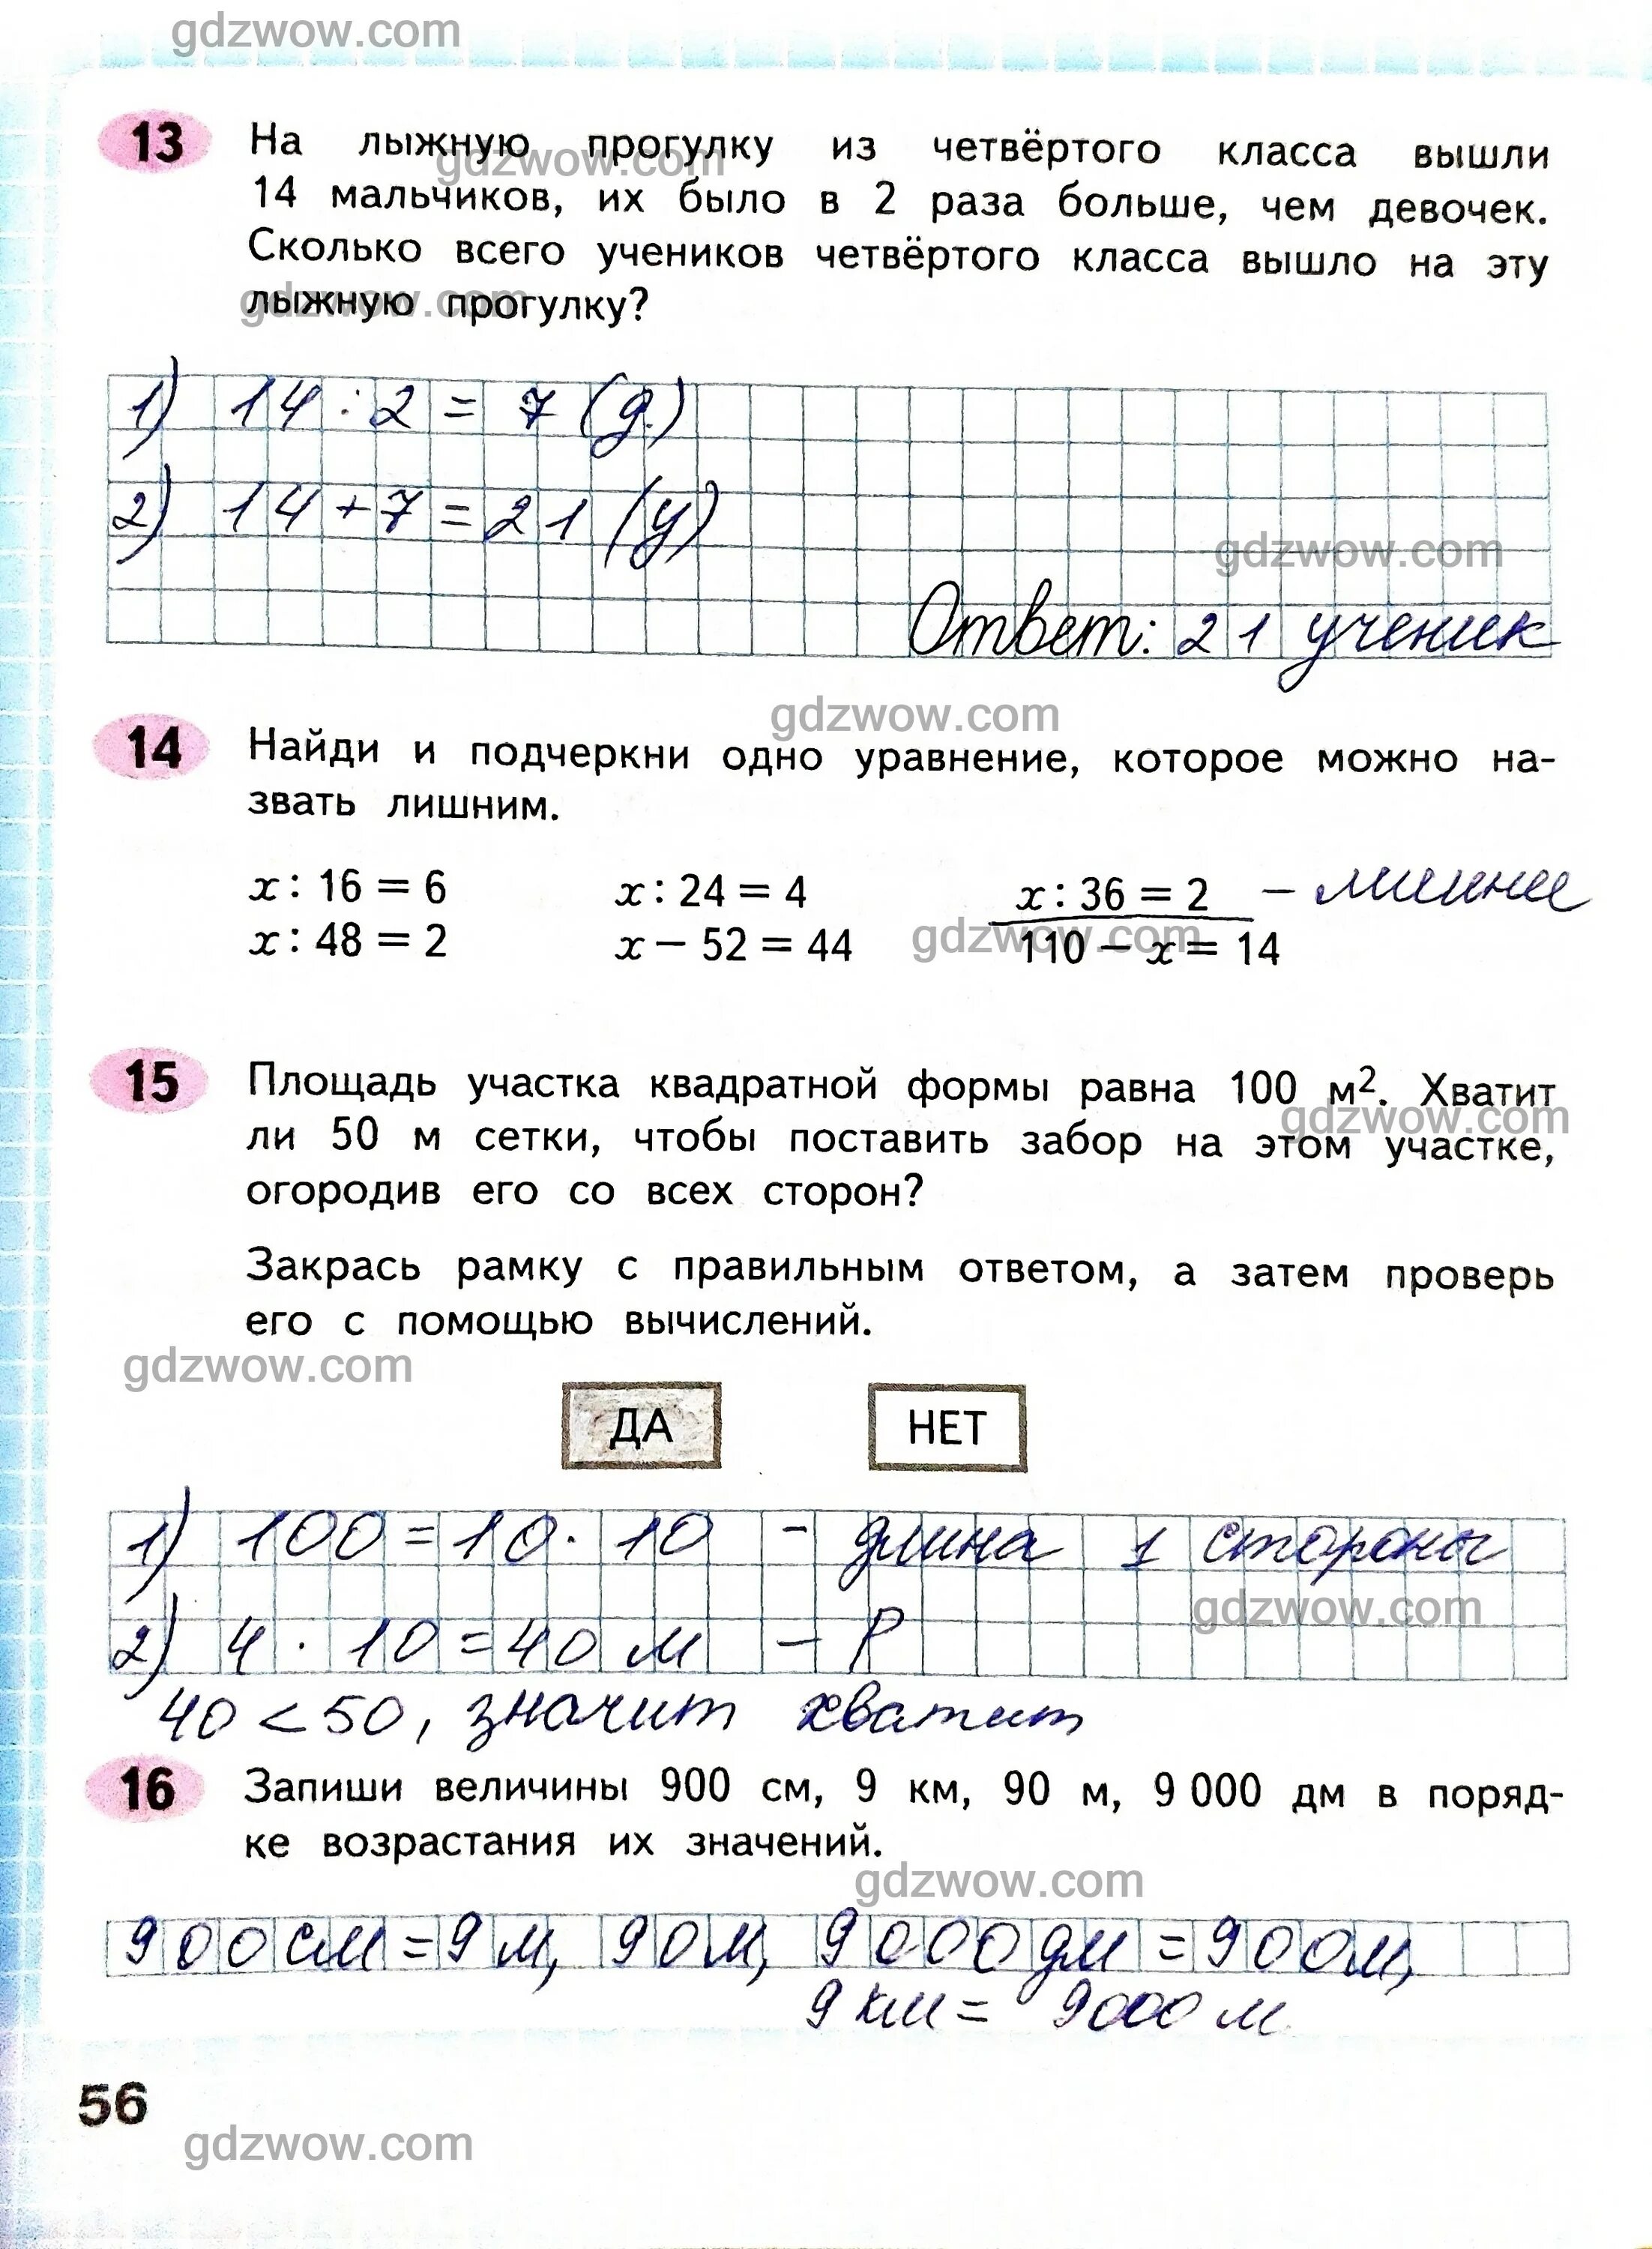 gdzwow.com
13 На лыжную прогулку из четвёртого класса вышли
gdzwow.com
14 мальчиков, их было в 2 раза больше, чем девочек.
Сколько всего учеников четвёртого класса вышло на эту
лыжную прогулку?
gdzwow.com
1) 14 : 2 = 7 (д.)
2) 14 + 7 = 21 (у)
gdzwow.com
Ответ: 21 ученик
gdzwow.com
14 Найди и подчеркни одно уравнение, которое можно на-
звать лишним.
x : 16 = 6 x : 24 = 4 x : 36 = 2 – лишнее
x : 48 = 2 x – 52 = 44 110 – x = 14
gdzwow.com
15 Площадь участка квадратной формы равна 100 м². Хватит
gdzwow.com
ли 50 м сетки, чтобы поставить забор на этом участке,
огородив его со всех сторон?
Закрась рамку с правильным ответом, а затем проверь
его с помощью вычислений.
gdzwow.com
ДА НЕТ
1) 100 = 10 · 10 – длина 1 стороны
gdzwow.com
2) 4 · 10 = 40 м – P
40 < 50, значит хватит
16 Запиши величины 900 см, 9 км, 90 м, 9 000 дм в поряд-
ке возрастания их значений.
gdzwow.com
900 см = 9 м, 90 м, 9000 дм = 900 м,
9 км = 9000 м
56
gdzwow.com